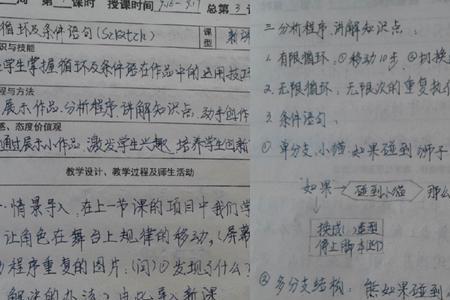 周 第 1 课时 授课时间 9.16-9.17 总第 3
循环及条件语句(Scratch) 课型 新授
识与技能
学生掌握循环及条件语在作品中的运用技巧
程与方法
展示作品.分析程序.讲解知识点.动手创作
感、态度价值观
通过展示小作品,激发学生兴趣,培养学生
教学设计、教学过程及师生活动
一.情景导入.在上一节课的项目中我们学
让角色在舞台上规律的移动。(屏幕
程序重复的图片.(问)①发现了什么?
解决的办法)由此导入新课
三.分析程序,讲解知识点.
1.有限循环.①移动10步.②切换
2.无限循环.无限次的重复执行
3.条件语句.
①单分支.小猫.如果碰到狮子
如果 碰到小猫 那么
换成( )造型
停止脚本
②多分支结构:熊如果碰到